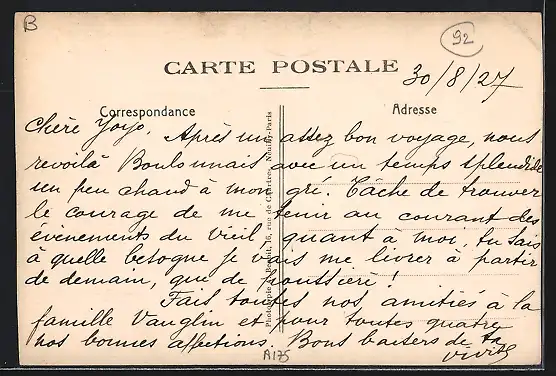 B
92
CARTE POSTALE
30/8/27
Correspondance
Adresse
Chère Yoyo. Après un assez bon voyage, nous
revoilà Boulonnais avec un temps splendide
un peu chaud à mon gré. Tâche de trouver
le courage de me tenir au courant des
évènements du Vieil, quant à moi, tu sais
à quelle besogne je vais me livrer à partir
de demain, que de poussière!
Fais toutes nos amitiés à la
famille Vauglin et pour toutes quatre
nos bonnes affections. Bons baisers de ta
A175
Photographie Benoit, 16, rue de Chartres, Neuilly-Paris